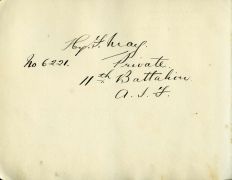 Hy. F. May.
No 6221. Private.
11th Battalion
A. I. F.